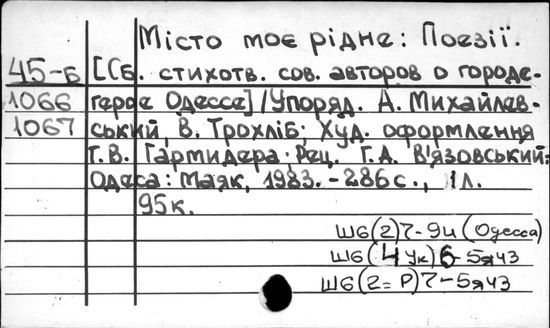 Місто моє рідне: Поезії.
45-Б [Сб. стихотв. сов. авторов о городе-
1066 герое Одессе] / Упоряд. А. Михайлев-
1067 ський, В. Трохліб; Худ. оформлення
Г.В. Гармидера; Рец. Г.А. В'язовський;
Одеса: Маяк, 1983. - 286 с., 1 л.
95 к.
Ш6(2)7-9и (Одесса)
Ш6(4Ук)6-5я43
Ш6(2=Р)7-5я43